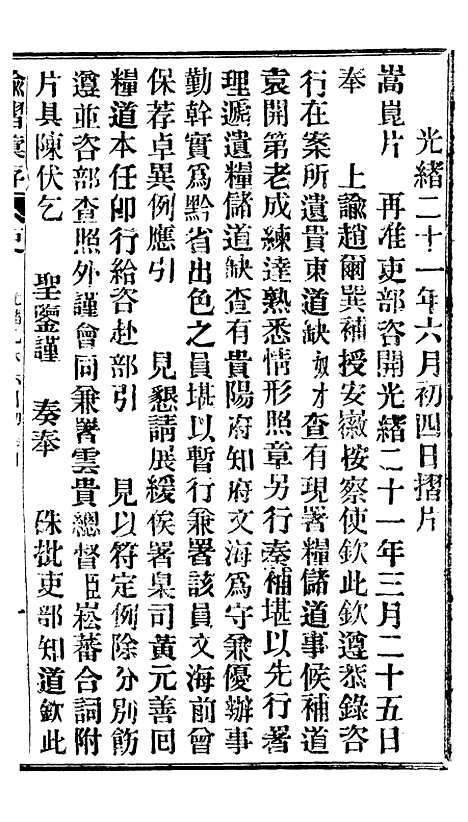 光緒二十一年六月初四日摺片
嵩崑片　再准吏部咨開光緒二十一年三月二十五日
奉　上諭趙爾巽補授安徽按察使欽此欽遵恭錄咨
行在案所遺貴東道缺奴才查有現署糧儲道事候補道
袁開第老成練達熟悉情形照章另行奏補堪以先行署
理遞遺糧儲道缺查有貴陽府知府文海為守兼優辦事
勤幹實為黔省出色之員堪以暫行兼署該員文海前曾
保荐卓異例應引　見懇請展緩俟署臬司黃元善回
糧道本任卽行給咨赴部引　見以符定例除分別飭
遵並咨部查照外謹會同兼署雲貴總督臣崧蕃合詞附
片具陳伏乞　聖鑒謹　奏奉　硃批吏部知道欽此
諭摺彙存